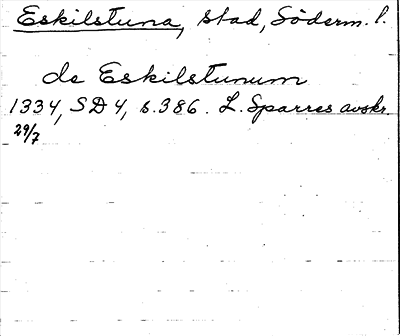 Eskilstuna, stad, Söderm. l.
de Eskilstunum
1334, SD 4, s. 386. L. Sparres avskr.
29/7